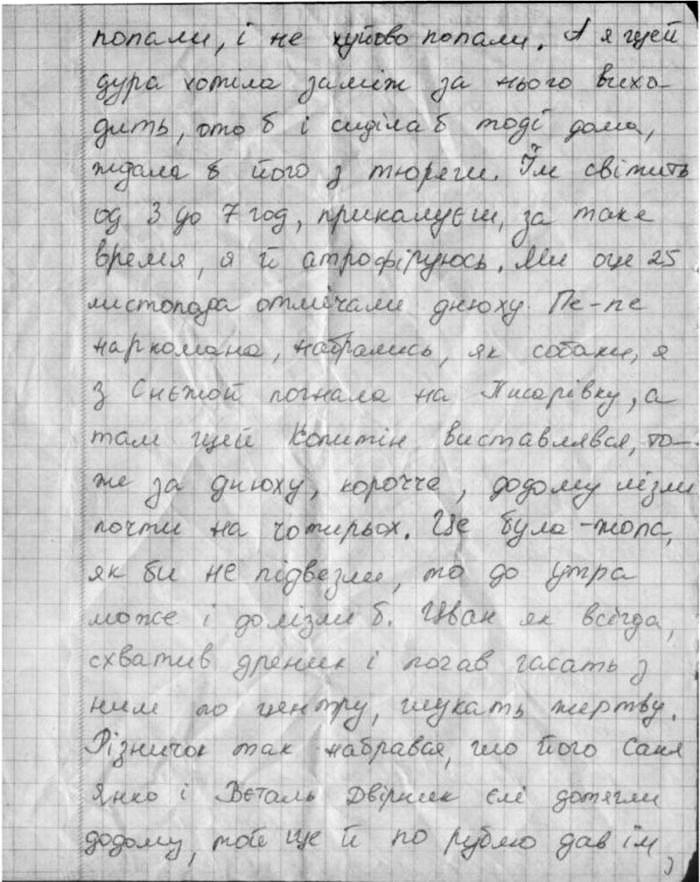 попали, і не хуйово попали. А я щей
дура хотіла заміж за нього вихо-
дить, ото б і сиділа б тоді дома,
ждала б його з тюряги. Їм світить
од 3 до 7 год, прикалуєш, за таке
время, я й атрофіруюсь. Ми оце 25
листопада отмічали днюху. Пе-пе
наркомана, набрались, як собаки, я
з Снєжой погнала на Писарівку, а
там щей Копитін виставлявся, то-
же за днюху, короче, додому лізли
почти на чотирьох. Це була - жопа,
як би не підвезли, то до утра
може і долізли б. Иван як всігда,
схватив дреник і почав гасать з
ним по центру, шукать жертву.
Різничок так набрався, шо його Саня
Янко і Вєталь Двірник єлі дотягли
додому, той ще й по рублю дав їм,